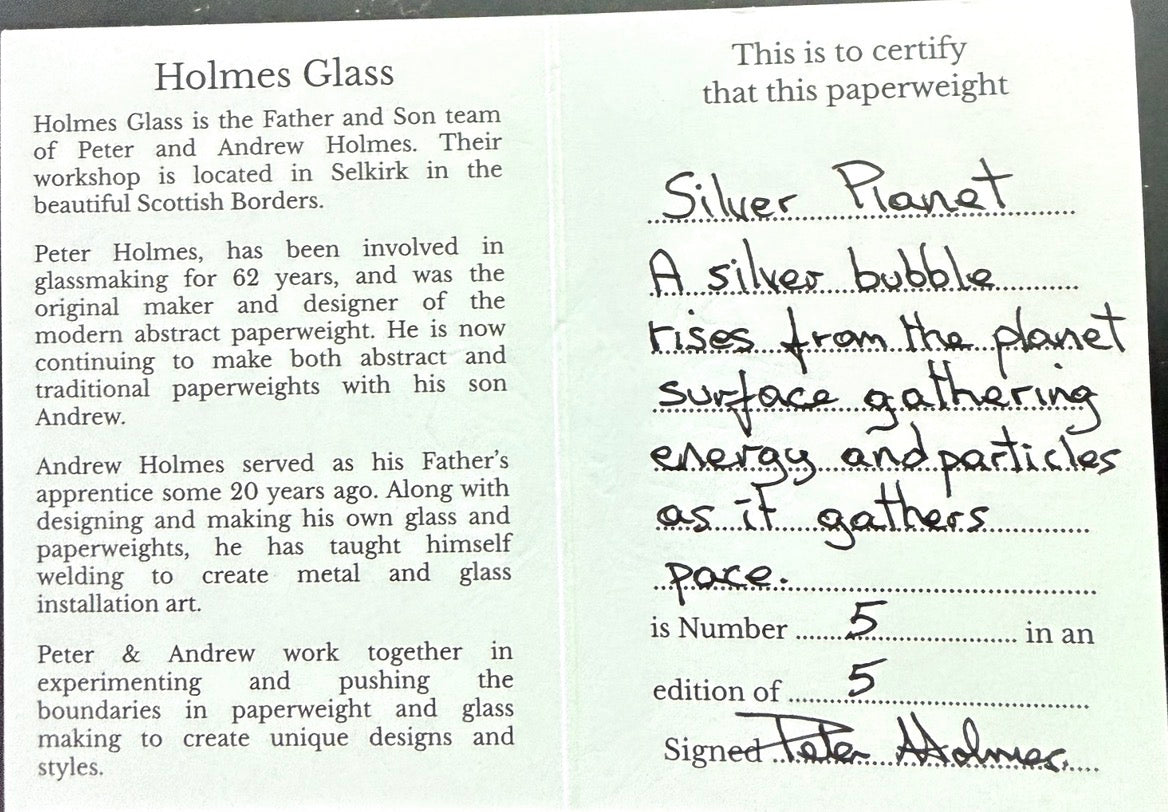 Holmes Glass
Holmes Glass is the Father and Son team
of Peter and Andrew Holmes. Their
workshop is located in Selkirk in the
beautiful Scottish Borders.
Peter Holmes, has been involved in
glassmaking for 62 years, and was the
original maker and designer of the
modern abstract paperweight. He is now
continuing to make both abstract and
traditional paperweights with his son
Andrew.
Andrew Holmes served as his Father's
apprentice some 20 years ago. Along with
designing and making his own glass and
paperweights, he has taught himself
welding to create metal and glass
installation art.
Peter & Andrew work together in
experimenting and pushing the
boundaries in paperweight and glass
making to create unique designs and
styles.
This is to certify
that this paperweight
Silver Planet
A silver bubble
rises from the planet
surface gathering
energy and particles
as it gathers
pace.
is Number 5 in an
edition of 5
Signed Peter Holmes.